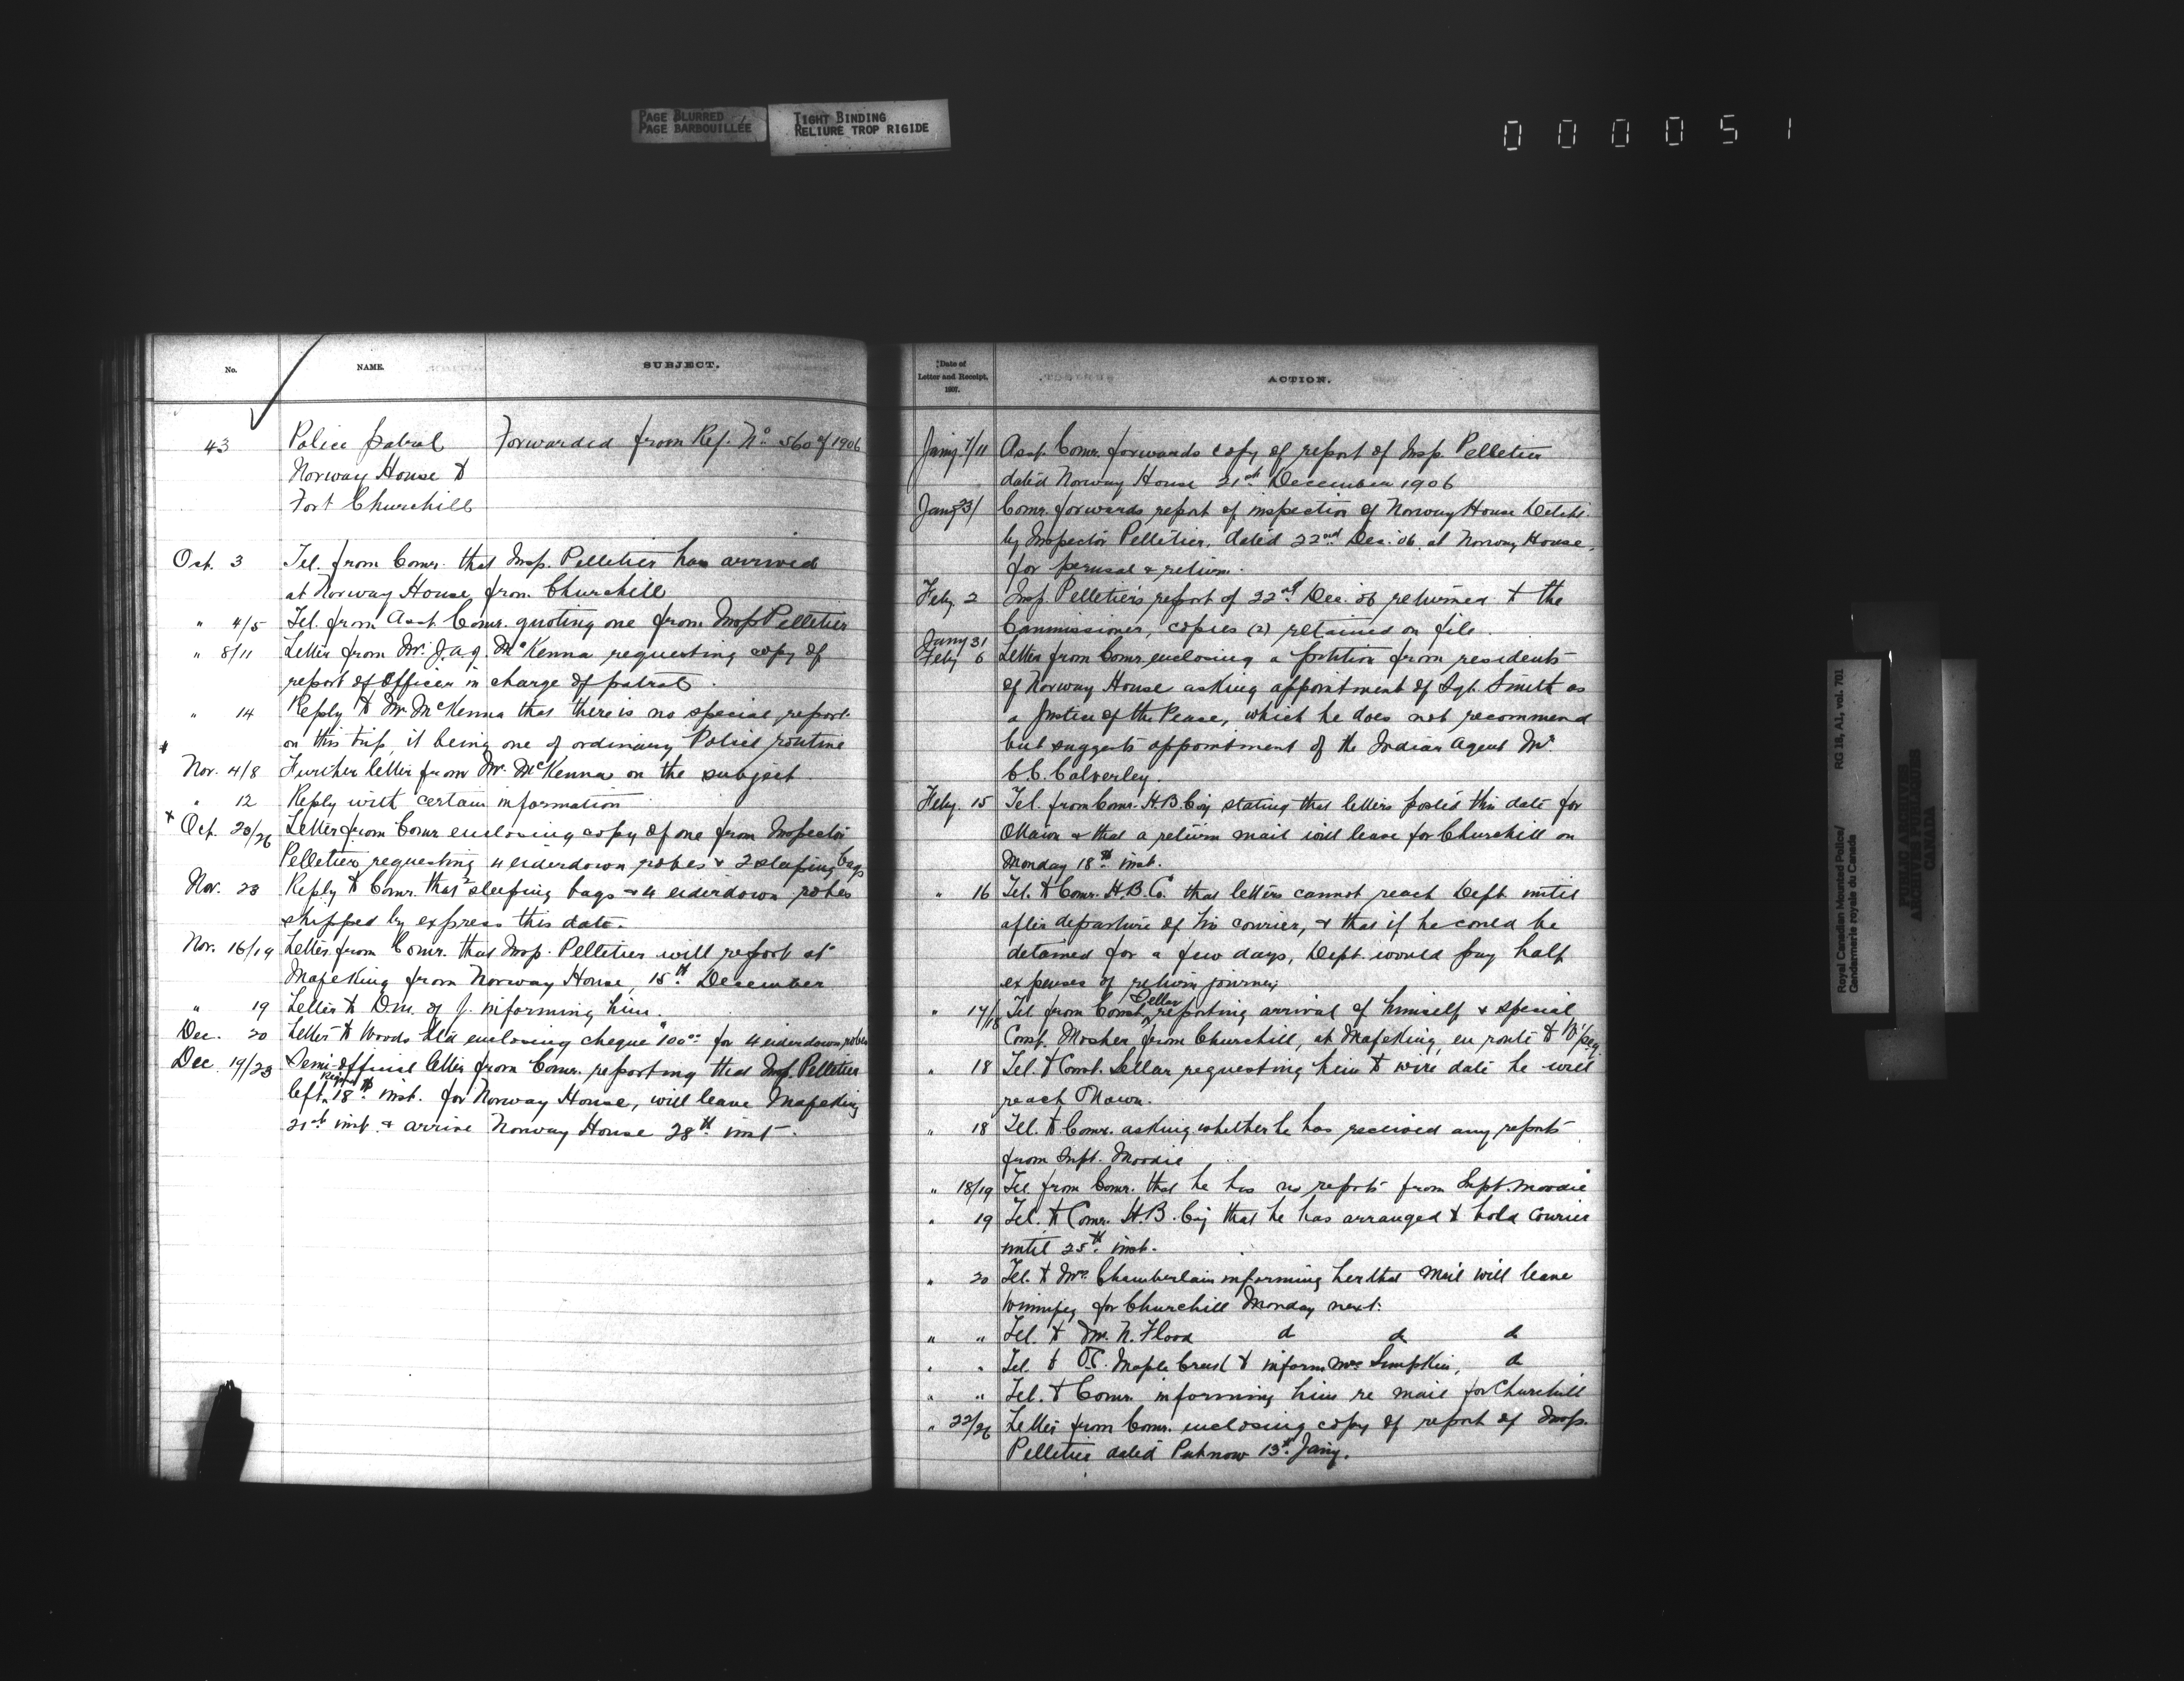 PAGE BLURRED
PAGE BARBOUILLÉE
TIGHT BINDING
RELIURE TROP RIGIDE
0 0 0 0 5 1
No. NAME. SUBJECT.
43 Police patrol Forwarded from Ref. No. 560 of 1906
Norway House &
Fort Churchill
Oct. 3 Tel. from Comr. that Insp. Pelletier has arrived
at Norway House from Churchill
" 4/5 Tel. from Asst. Comr. quoting one from Insp Pelletier
" 8/11 Letter from Mr. J.A.J. McKenna requesting copy of
report of Officer in charge of patrol.
" 14 Reply to Mr. McKenna that there is no special report
on this trip, it being one of ordinary Police routine
Nov. 4/8 Further letter from Mr. McKenna on the subject.
" 12 Reply with certain information
x Oct. 20/26 Letter from Comr enclosing copy of one from Inspector
Pelletier requesting 4 eiderdown robes & 2 sleeping bags
Nov. 23 Reply to Comr. that 2 sleeping bags & 4 eiderdown robes
shipped by express this date.
Nov. 16/19 Letter from Comr. that Insp. Pelletier will report at
Mafeking from Norway House, 15th December
" 19 Letter to D.M. of J. informing him.
Dec. 20 Letter to Woods Ltd enclosing cheque 100 00 for 4 eiderdown robes
Dec 19/23 Semi-official letter from Comr. reporting that Insp. Pelletier
left Regina 18th inst. for Norway House, will leave Mafeking
21st inst. & arrive Norway House 28th inst.
Date of
Letter and Receipt,
1907.
ACTION.
Jany. 7/11 Asst. Comr. forwards copy of report of Insp. Pelletier
dated Norway House 21st December 1906
Jany 23/ Comr. forwards report of inspection of Norway House Detcht.
by Inspector Pelletier, dated 22nd Dec. 06. at Norway House,
for perusal & return.
Feby. 2 Insp. Pelletier's report of 22nd Dec. 06 returned to the
Commissioner, copies (2) retained on file.
Jany 31
Feby 6 Letter from Comr. enclosing a petition from residents
of Norway House asking appointment of Sgt. Smith as
a Justice of the Peace, which he does not recommend
but suggests appointment of the Indian Agent Mr
C.C. Calverley.
Feby. 15 Tel. from Comr. H.B. Coy stating that letters posted this date for
Ottawa & that a return mail will leave for Churchill on
Monday 18th inst.
" 16 Tel. to Comr. H.B.Co. that letters cannot reach Dept until
after departure of his courier, & that if he could be
detained for a few days, Dept. would pay half
expenses of return journey
" 17/18 Tel from Const. Sellar reporting arrival of himself & special
Const. Mosher from Churchill, at Mafeking, en route to W'peg.
" 18 Tel. to Const. Sellar requesting him to wire date he will
reach Ottawa.
" 18 Tel. to Comr. asking whether he has received any reports
from Supt. Moodie
" 18/19 Tel. from Comr. that he has no reports from Supt. Moodie
" 19 Tel. to Comr. H.B. Coy that he has arranged to hold courier
until 25th inst.
" 20 Tel. to Mrs. Chamberlain informing her that mail will leave
Winnipeg for Churchill Monday next.
" " Tel. to Mr. N. Flood do do do
" " Tel. to O.C. Maple Creek to inform Mrs Simpkin, do
" " Tel. to Comr. informing him re mail for Churchill
" 22/26 Letter from Comr. enclosing copy of report of Insp.
Pelletier dated 13th Jany.
Royal Canadian Mounted Police/
Gendarmerie royale du Canada
RG 18, A1, vol. 701
PUBLIC ARCHIVES
ARCHIVES PUBLIQUES
CANADA